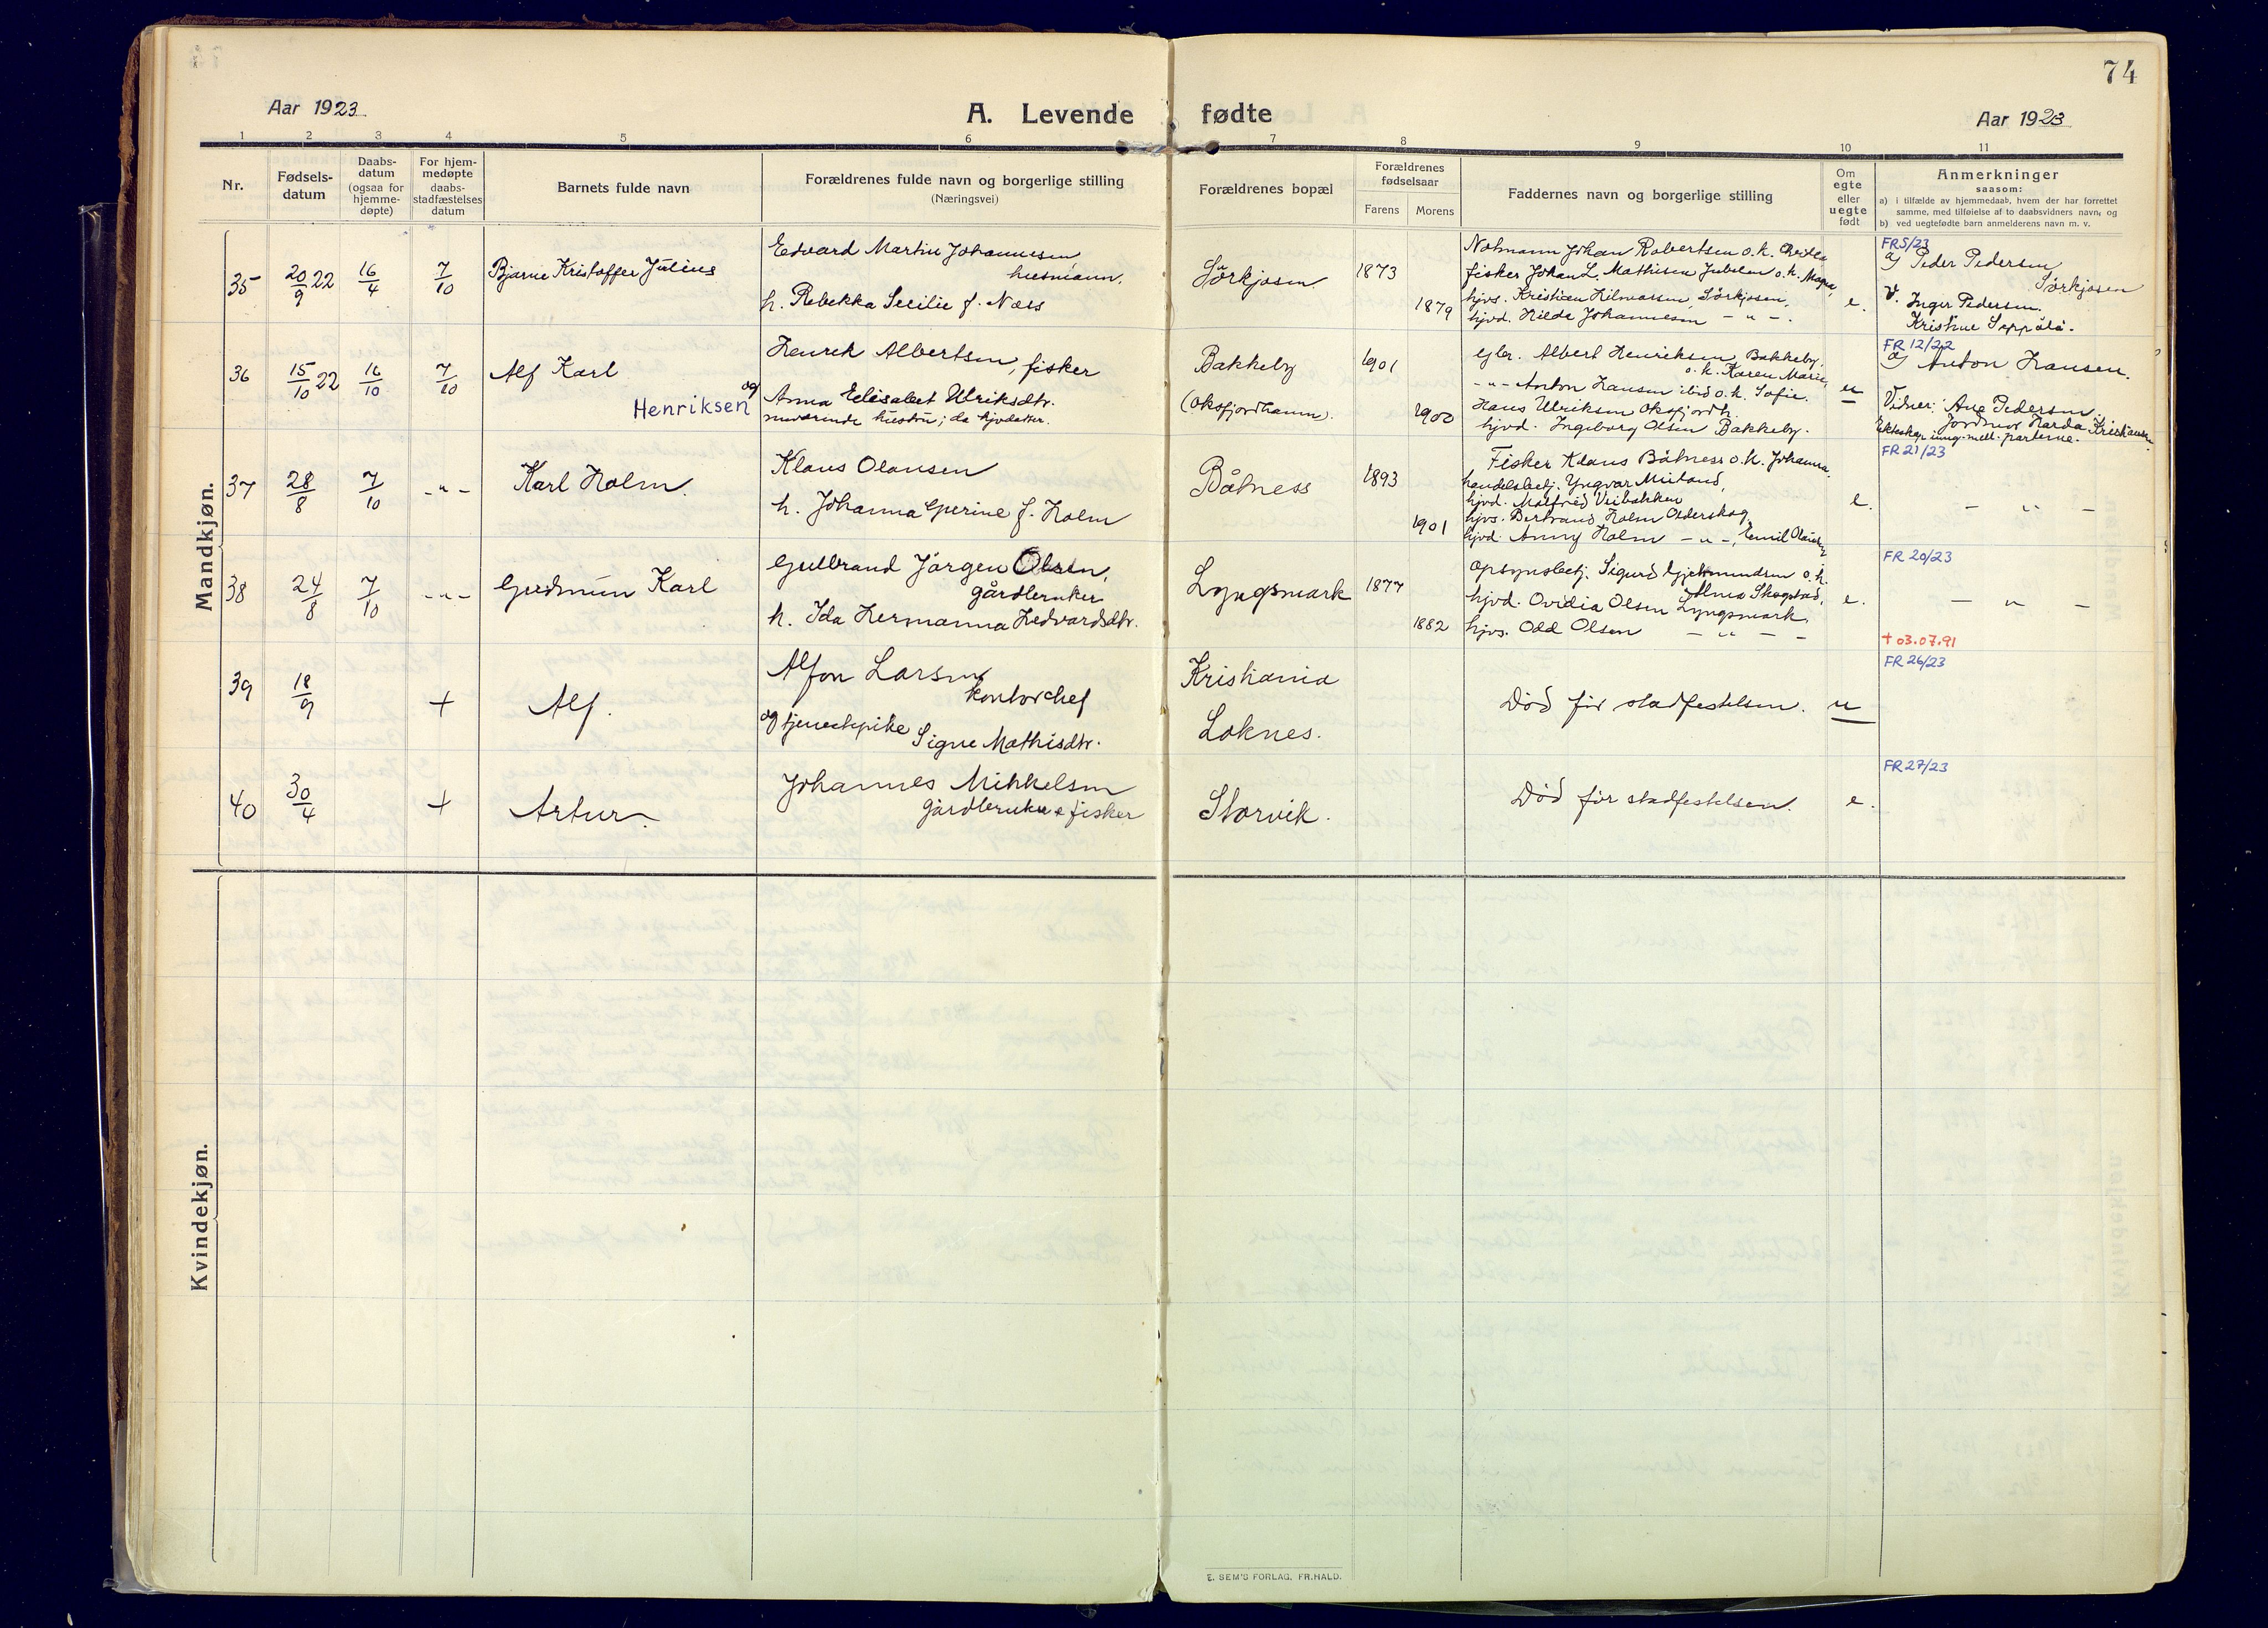 74
Aar 1923
A. Levende fødte
Aar 1923
1 2 3 4 5 6 7 8 9 10 11
Nr.
Fødsels-
datum
Daabs-
datum
(ogsaa for
hjemme-
døpte)
For hjem-
medøpte
daabs-
stadfæstelses
datum
Barnets fulde navn
Forældrenes fulde navn og borgerlige stilling
(Næringsvei)
Forældrenes bopæl
Forældrenes
fødselsaar
Farens Morens
Faddernes navn og borgerlige stilling
Om
egte
eller
uegte
født
Anmerkninger
saasom:
a) i tilfælde av hjemmedaab, hvem der har forrettet
samme, med tilføielse af to daabsvidners navn, og
b) ved uegtefødte barn anmelderens navn m. v.
Mandkjøn.
35 20/9 22 16/4 7/10 Bjarne Kristoffer Julius
Edvard Martin Johannesen
husmann.
h. Rebekka Secilie f. Næss
Sörkjosen
1873
1879
Notmann Johan Robertsen o.h.
fisker Johan L. Mathisen o.h.
hjvs. Kristian Hilmarsen, Sörkjosen,
hjvd. Hilda Johannesen - " -.
e.
FR 5/23
a) Peder Pedersen
Sörkjosen
V. Inger Pedersen.
Kristine Seppälä.
36 15/10 22 16/10 7/10 Alf Karl
Henriksen
Henrik Albertsen, fisker
og
Anna Elisabet Ulriksdtr.
nuværende hustru; da hjvdatter.
Bakkeby
(Oksfjordhamn).
1901
1900
Gbr. Albert Henriksen, Bakkeby,
o.h. Karen Marie,
- " - Anton Hansen ibid o.h. Sofie.
Hans Ulriksen Oksfjordh.
hjvd. Ingeborg Olsen Bakkeby.
u
FR 12/22
a) Anton Hansen.
Vidner: Ane Pedersen.
Jordmor Harda Kristiansen
Ekteskap inng. mell. parterne.
37 28/8 7/10 - " - Karl Holm.
Klaus Olansen
h. Johanna Gjerine f. Holm
Båtness
1893
1901
Fisker Klaus Båtness o.h. Johanna,
handelsbetj. Yngvar
hjvd. Malfrid Veibakken
hjvs. Bertrand Holm Olderskog,
hjvd. Anny Holm - " -, Emil
e.
FR 21/23
- " -
38 24/8 7/10 - " - Gudmun Karl
Gulbrand Jörgen Olsen,
gårdbruker
h. Ida Hermanna Hedvardsdtr.
Lyngsmark
1877
1882
Opsynsbetj. Sigurd Gjetmundsen o.h.
Alma Skogstad,
hjvd. Ovidia Olsen Lyngsmark,
hjvs. Odd Olsen - " - -
e.
FR 20/23
- " -
+ 03.07.91
39 18/9 + Alf.
Alfon Larsen
kontorchef
og tjenestepike Signe Mathisdtr.
Kristiania
Loknes.
Död för stadfestelsen.
u
FR 26/23
40 30/4 + Artur.
Johannes Mikkelsen
gårdbruker & fisker
Storvik.
Död för stadfestelsen.
e.
FR 27/23
Kvindekjøn.
E. SEM'S FORLAG, FR.HALD.